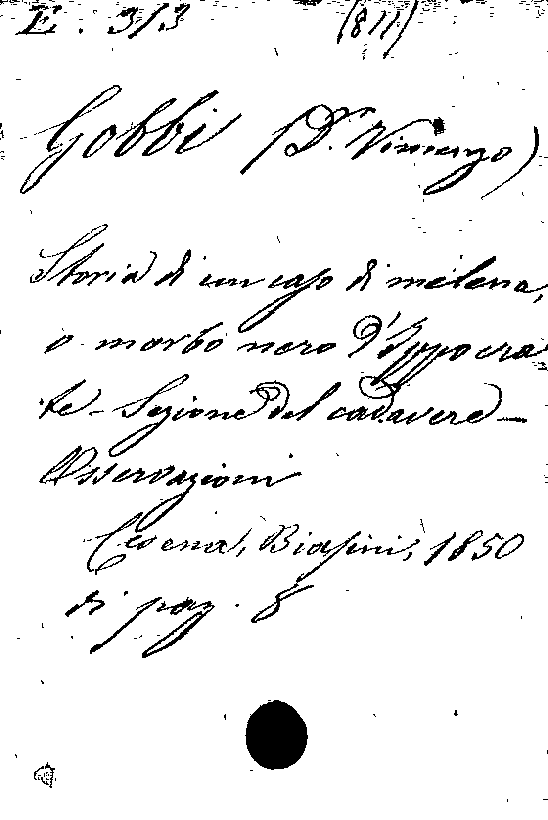 E. 313 (811)
Gobbi (Dr. Vincenzo)
Storia di un caso di melena,
o morbo nero d'Ippocra
te - Sezione del cadavere -
Osservazioni
Cesena, Biasini, 1850
di pag. 8